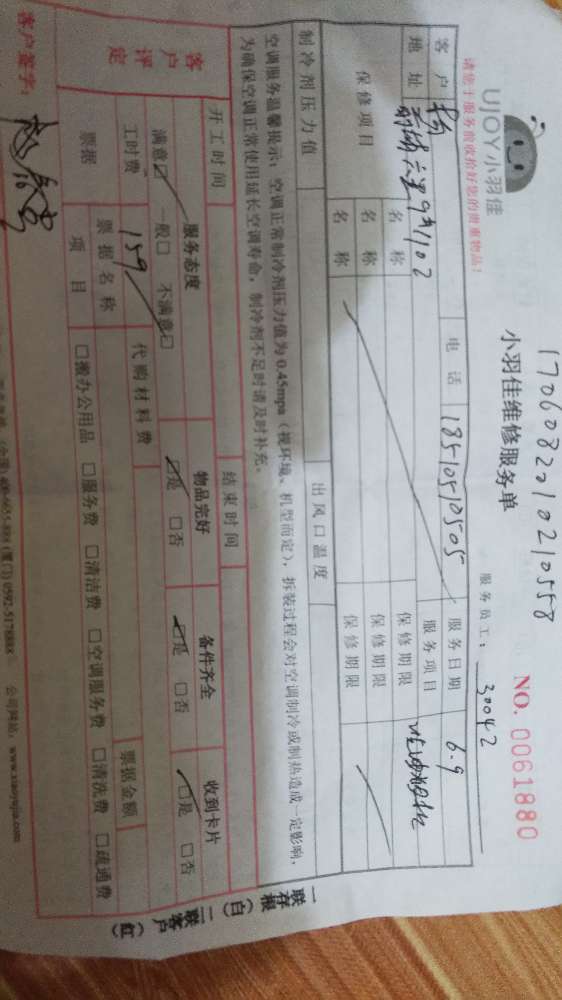 17060822010210558
UJOY小羽佳
小羽佳维修服务单
NO. 0061880
请您于服务前收拾好您的贵重物品!
服务员工: 30042
客户 杨 电话 18510510505 服务日期 6.9
地址 9#1102 服务项目
保修项目 名称 保修期限
名称 保修期限
名称 保修期限
制冷剂压力值 出风口温度
空调服务温馨提示: 空调正常制冷剂压力值为0.45mpa(视环境、机型而定), 拆装过程会对空调制冷或制热造成一定影响,
为确保空调正常使用延长空调寿命, 制冷剂不足时请及时补充。
开工时间 结束时间
客户评定 服务态度 物品完好 备件齐全 收到卡片
满意☑ 一般□ 不满意□ ☑是 □否 ☑是 □否 ☑是 □否
工时费 159 代购材料费
票据 票据名称 票据金额
项目 □搬办公用品 □服务费 □清洁费 □空调服务费 □清洗费 □疏通费
客户签字:
(厦门) 0592-5178888 公司网站: www.xiaoyujia.com
一联存根(白) 二联客户(红)